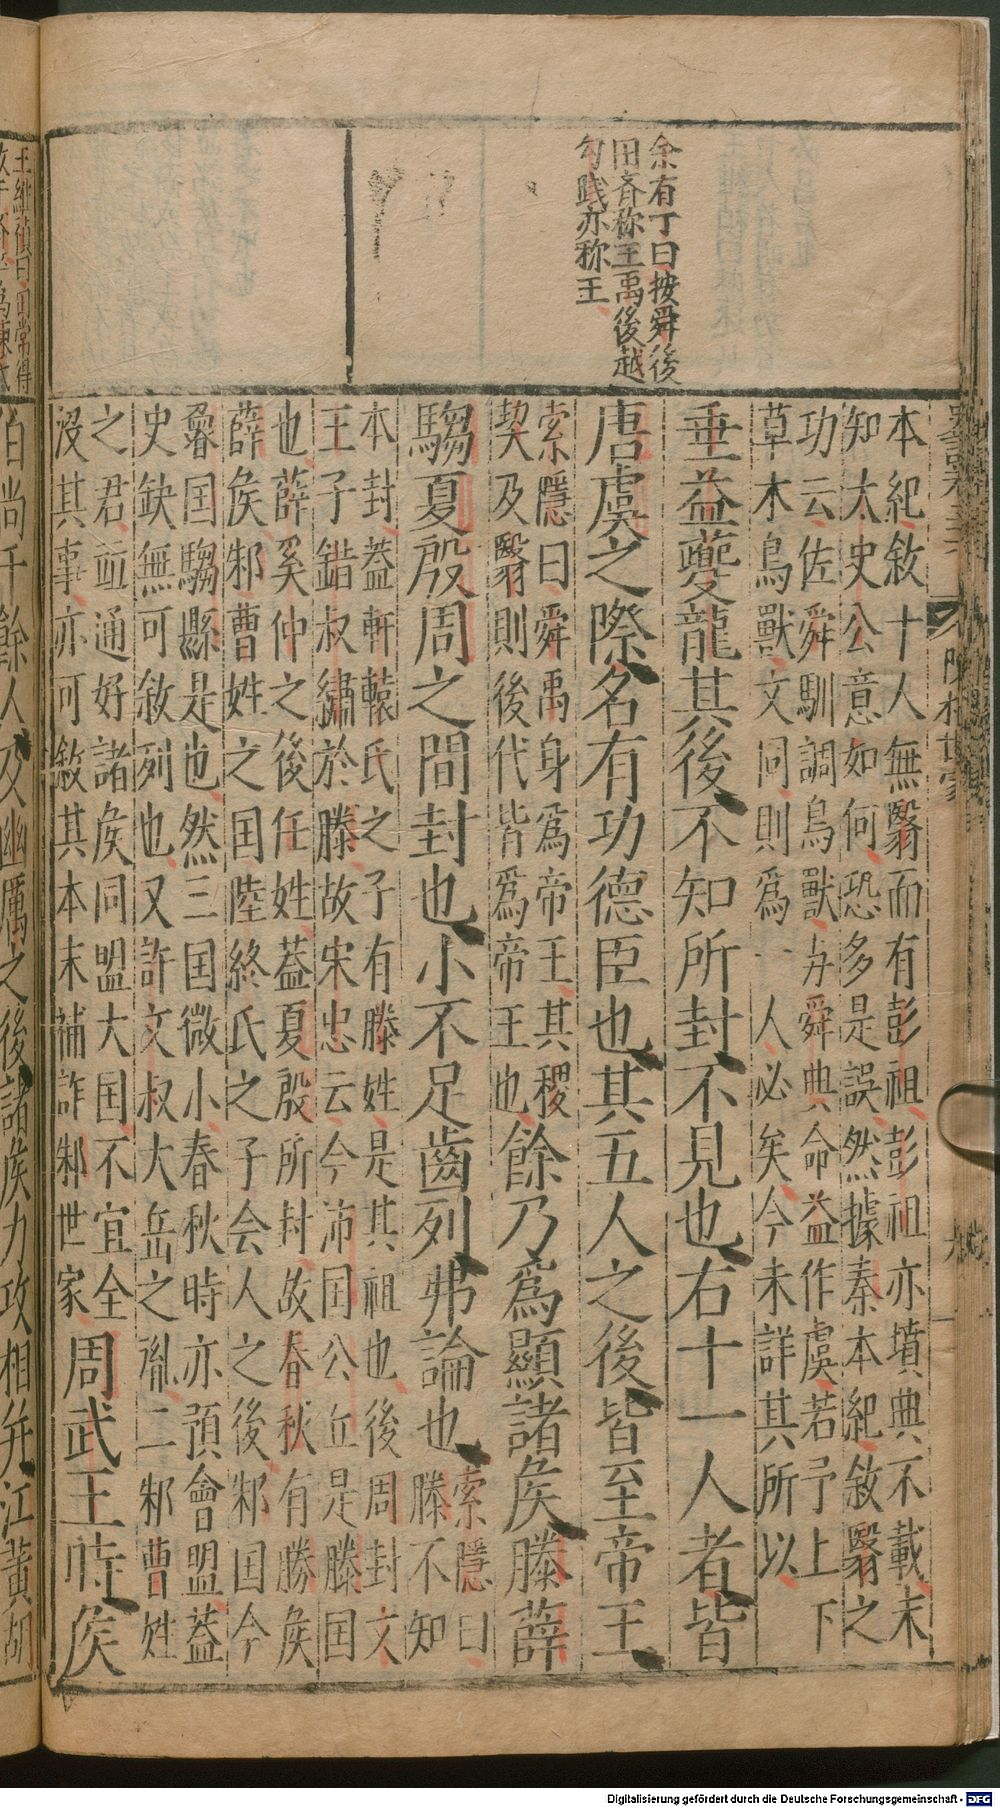 余有丁曰按舜後
田斉称王禹後越
勾践亦称王
本紀敘十人無翳而有彭祖彭祖亦墳典不載未
知太史公意如何恐多是誤然據秦本紀敘翳之
功云佐舜馴調鳥獸与舜典命益作虞若予上下
草木鳥獸文同則爲一人必矣今未詳其所以
垂益夔龍其後不知所封不見也右十一人者皆
唐虞之際名有功德臣也其五人之後皆至帝王
索隱曰舜禹身爲帝王其稷
契及翳則後代皆爲帝王也
餘乃爲顯諸矦滕薛
騶夏殷周之間封也小不足齒列弗論也
索隱曰
滕不知
本封蓋軒轅氏之子有滕姓是其祖也後周封文
王子錯叔繡於滕故宋忠云今沛国公丘是滕国
也薛奚仲之後任姓蓋夏殷所封故春秋有勝矦
薛矦邾曹姓之国陸終氏之子会人之後邾国今
魯国騶縣是也然三国微小春秋時亦預會盟蓋
史缺無可敘列也又許文叔大岳之胤二邾曹姓
之君竝通好諸矦同盟大国不宜全
沒其事亦可敘其本末補許邾世家
周武王時矦
伯尚千餘人及幽厲之後諸矦力攻相并江黃胡
陳杞世家
九
Digitalisierung gefördert durch die Deutsche Forschungsgemeinschaft - DFG